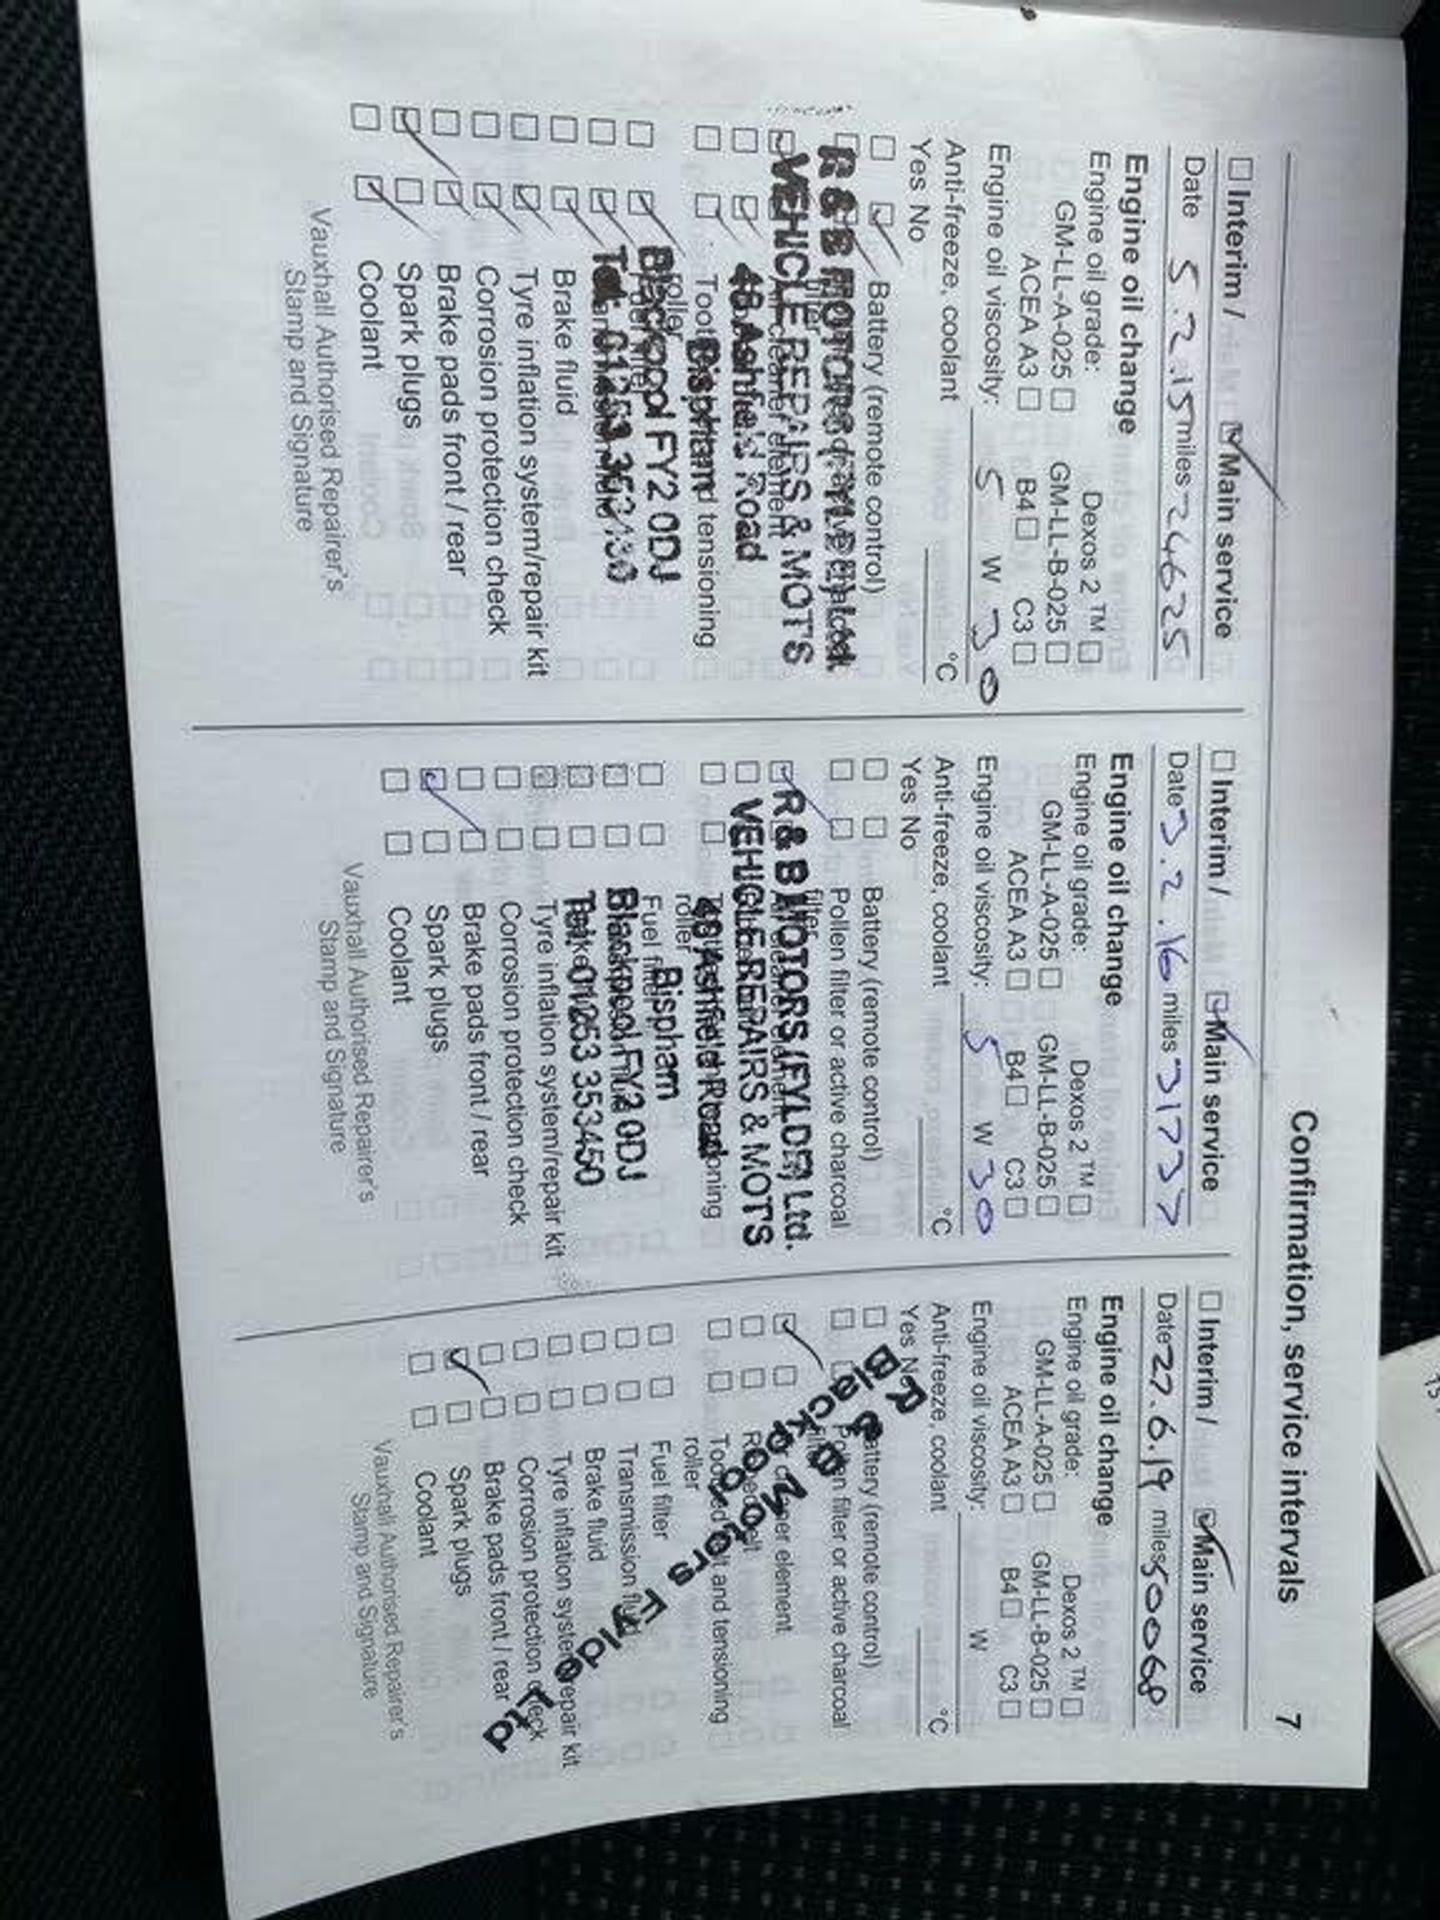 Confirmation, service intervals 7
Interim / Main service
Date 5.2.15 miles 24625
Engine oil change
Engine oil grade: Dexos 2 ™
GM-LL-A-025 GM-LL-B-025
ACEA A3 B4 C3
Engine oil viscosity: 5 W 30
Anti-freeze, coolant °C
Yes No
Battery (remote control)
R & B MOTORS (FYLDE) Ltd.
VEHICLE REPAIRS & MOT'S
48 Ashfield Road
Bispham
Blackpool FY2 0DJ
Tel:
Toothed and tensioning
roller
Brake fluid
Tyre inflation system/repair kit
Corrosion protection check
Brake pads front / rear
Spark plugs
Coolant
Vauxhall Authorised Repairer's
Stamp and Signature
Interim / Main service
Date 3.2.16 miles 31737
Engine oil change
Engine oil grade: Dexos 2 ™
GM-LL-A-025 GM-LL-B-025
ACEA A3 B4 C3
Engine oil viscosity: 5 W 30
Anti-freeze, coolant °C
Yes No
Battery (remote control)
Pollen filter or active charcoal
filter
R & B MOTORS (FYLDE) Ltd.
VEHICLE REPAIRS & MOT'S
48 Ashfield Road
roller
Bispham
Fuel filter
Blackpool FY2 0DJ
Tel: 01253 353450
Tyre inflation system/repair kit
Corrosion protection check
Brake pads front / rear
Spark plugs
Coolant
Vauxhall Authorised Repairer's
Stamp and Signature
Interim / Main service
Date 27.6.19 miles 50068
Engine oil change
Engine oil grade: Dexos 2 ™
GM-LL-A-025 GM-LL-B-025
ACEA A3 B4 C3
Engine oil viscosity: W
Anti-freeze, coolant °C
Yes No
Battery (remote control)
Pollen filter or active charcoal
filter
Air cleaner element
Toothed belt and tensioning
roller
Fuel filter
Transmission fluid
Brake fluid
Tyre inflation system/repair kit
Corrosion protection check
Brake pads front / rear
Spark plugs
Coolant
R & B Motors Fylde Ltd
Blackpool
Vauxhall Authorised Repairer's
Stamp and Signature